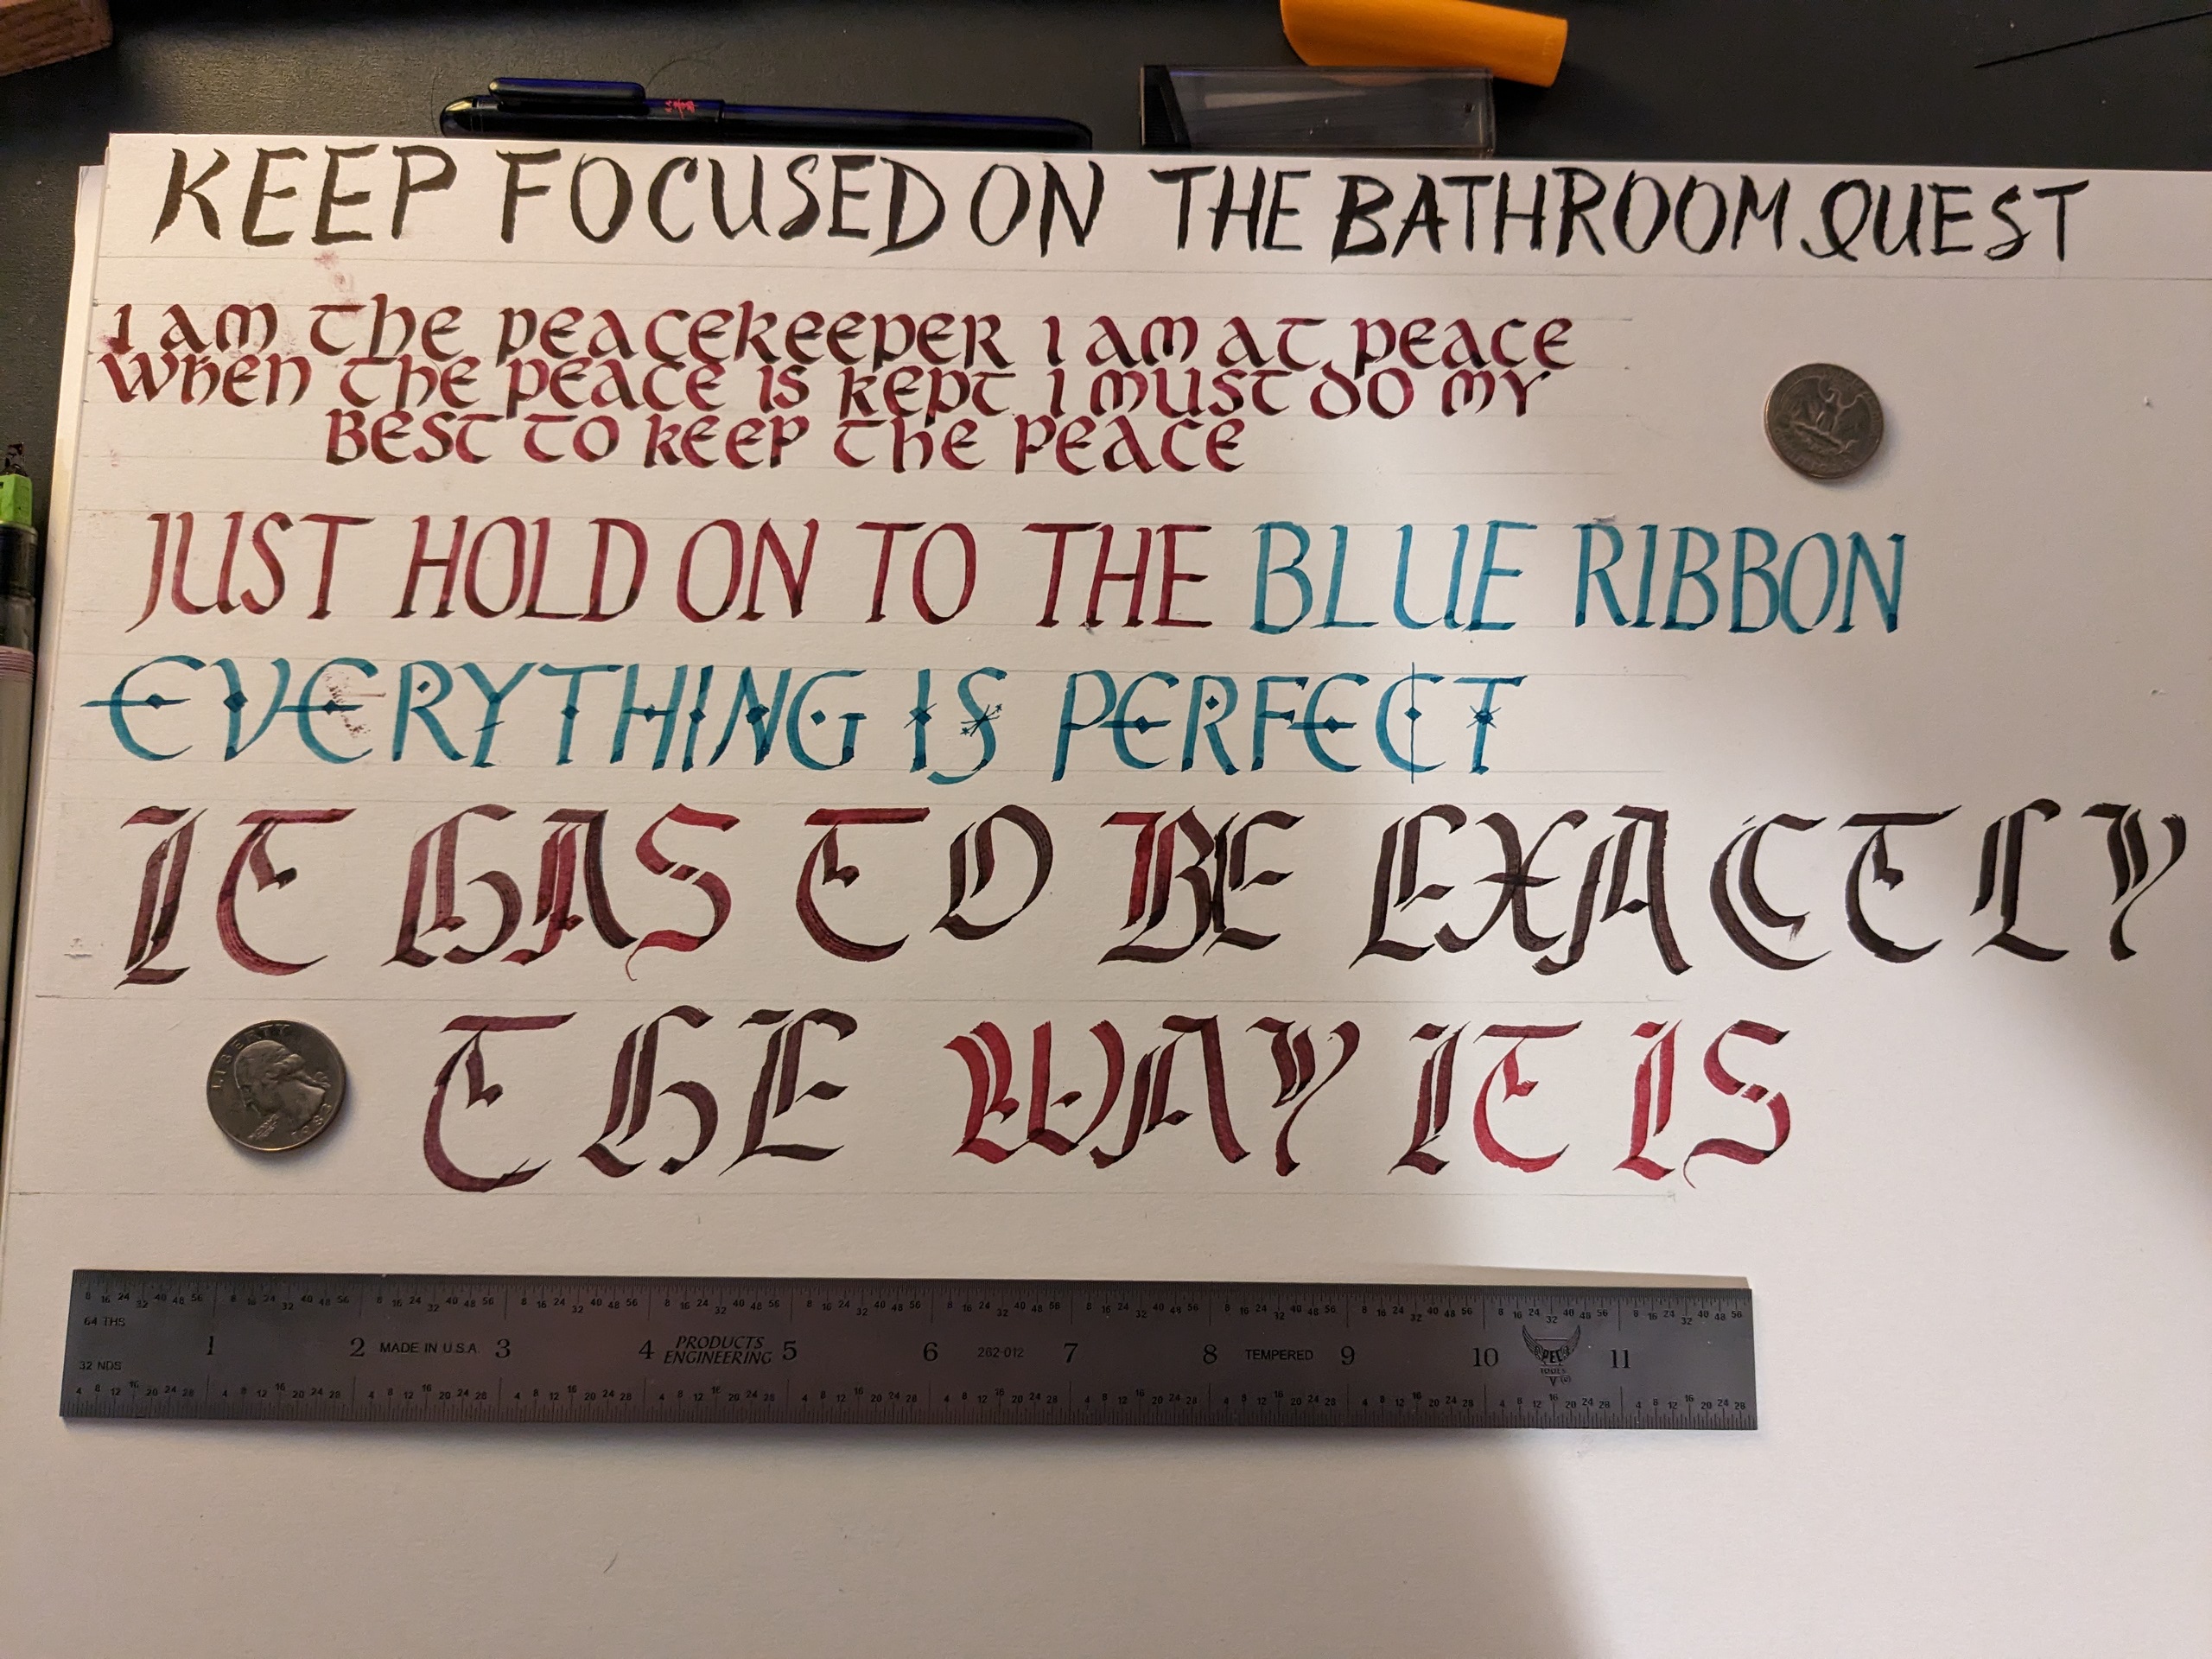 KEEP FOCUSED ON THE BATHROOM QUEST
I AM The PEACEKEEPER I AM AT PEACE
WhEN ThE PEACE IS KEPT I MUST DO MY
BEST TO KEEP The PEACE
JUST HOLD ON TO THE BLUE RIBBON
EVERYTHING IS PERFECT
IT HAS TO BE EXACTLY
LIBERTY
THE WAY IT IS
8 16 24 32 40 48 56 8 16 24 32 40 48 56 8 16 24 32 40 48 56 8 16 24 32 40 48 56 8 16 24 32 40 48 56 8 16 24 32 40 48 56 8 16 24 32 40 48 56 8 16 24 32 40 48 56 8 16 24 32 40 48 56 8 16 24 32 40 48 56 8 16 24 32 40 48 56 8 16 24 32 40 48 56
64 THS
1 2 MADE IN U.S.A. 3 4 PRODUCTS ENGINEERING 5 6 262-012 7 8 TEMPERED 9 10 PEC TOOLS 11
32 NDS
4 8 12 16 20 24 28 4 8 12 16 20 24 28 4 8 12 16 20 24 28 4 8 12 16 20 24 28 4 8 12 16 20 24 28 4 8 12 16 20 24 28 4 8 12 16 20 24 28 4 8 12 16 20 24 28 4 8 12 16 20 24 28 4 8 12 16 20 24 28 4 8 12 16 20 24 28 4 8 12 16 20 24 28